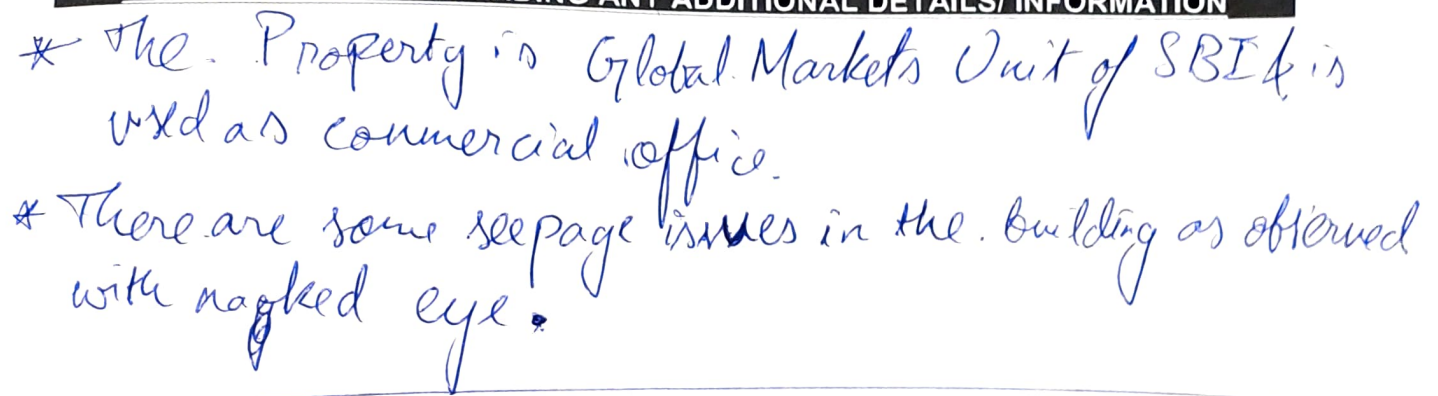 ANY ADDITIONAL DETAILS/ INFORMATION
* The. Property is Global Markets Unit of SBI & is
used as commercial office.
* There are some seepage issues in the building as observed
with nagked eye.